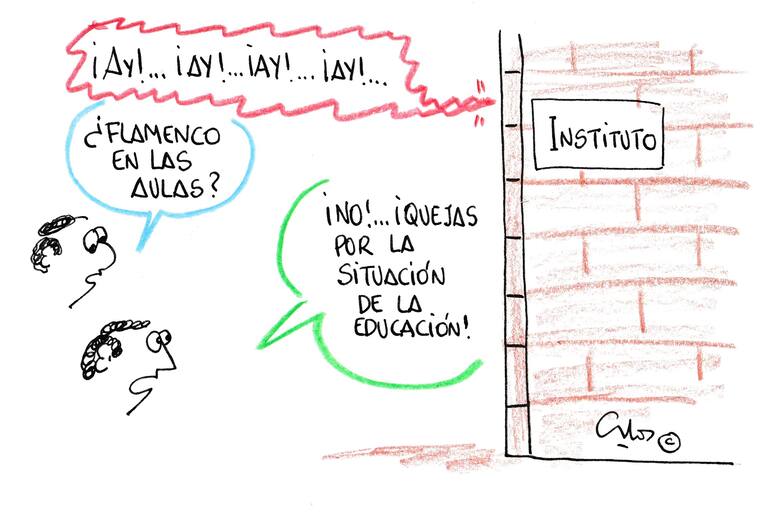 ¡AY!... ¡AY!...¡AY!... ¡AY!...
¿FLAMENCO
EN LAS
AULAS?
¡NO!...¡QUEJAS
POR LA
SITUACIÓN
DE LA
EDUCACIÓN!
INSTITUTO
©